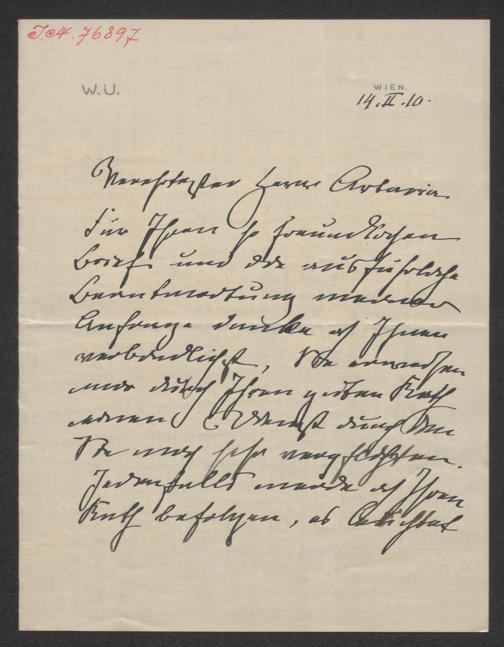 J.N. 76897
W.U.
WIEN.
14.II.10.
Verehrtester Herr Artaria
Für Ihren so freundlichen
Brief und die ausführliche
Beantwortung meiner
Anfrage danke ich Ihnen
verbindlichst, Sie erweisen
mir durch Ihren guten Rath
einen Dienst durch den
Sie mich sehr verpflichten.
Jedenfalls werde ich Ihren
Rath befolgen, es